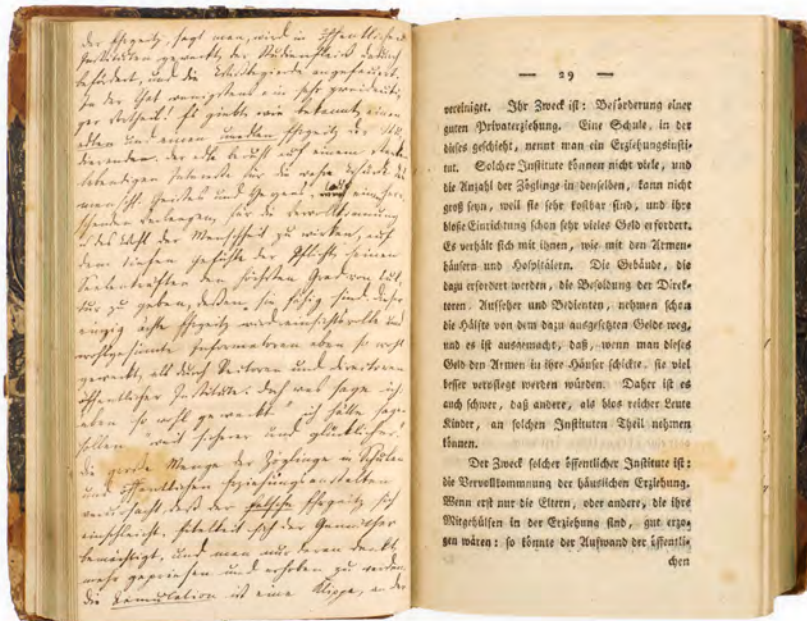 der Ehrgeitz, sagt man, wird in öffentlichen
Instituten geweckt, der Studienfleiß dadurch
befördert, und die Wißbegierde angefeuert.
In der That wenigstens ein sehr zweideuti,
ger Vortheil! Es giebt, wie bekannt, einen
edlen und einen unedlen Ehrgeitz der Stu,
dierenden. der edle beruht auf einem
lebendigen Interesse für die wahre
Geistes und Herzens, auf
Verlangen, für die Vervollkommnung
der Menschheit zu wirken, auf
dem tiefen Gefühle der Pflicht, seinen
Seelenkräften den höchsten Grad von Cul,
tur zu geben, dessen sie fähig sind. dieser
einzig ächte Ehrgeitz wird einsichtsvolle und
wohlgesinnte Informatoren eben so wohl
geweckt, als durch Rectoren und Directoren
öffentlicher Institute. doch was sage ich
eben so wohl geweckt" ich hätte sagen
sollen "weit sicherer und glücklicher".
die große Menge der Zöglinge in Schulen
und öffentlichen Erziehungsanstalten
verursacht, daß der falsche Ehrgeitz sich
einschleicht, Eitelkeit sich der Gemüther
bemächtigt, und man nur daran denkt,
mehr gepriesen und erhoben zu werden.
die Aemulation ist eine Klippe, an der
— 29 —
vereiniget. Ihr Zweck ist: Beförderung einer
guten Privaterziehung. Eine Schule, in der
dieses geschieht, nennt man ein Erziehungsinsti-
tut. Solcher Institute können nicht viele, und
die Anzahl der Zöglinge in denselben, kann nicht
groß seyn, weil sie sehr kostbar sind, und ihre
bloße Einrichtung schon sehr vieles Geld erfordert.
Es verhält sich mit ihnen, wie mit den Armen-
häusern und Hospitälern. Die Gebäude, die
dazu erfordert werden, die Besoldung der Direk-
toren, Aufseher und Bedienten, nehmen schon
die Hälfte von dem dazu ausgesetzten Gelde weg,
und es ist ausgemacht, daß, wenn man dieses
Geld den Armen in ihre Häuser schickte, sie viel
besser verpflegt werden würden. Daher ist es
auch schwer, daß andere, als blos reicher Leute
Kinder, an solchen Instituten Theil nehmen
können.
Der Zweck solcher öffentlicher Institute ist:
die Vervollkommnung der häuslichen Erziehung.
Wenn erst nur die Eltern, oder andere, die ihre
Mitgehülfen in der Erziehung sind, gut erzo-
gen wären: so könnte der Aufwand der öffentli-
chen